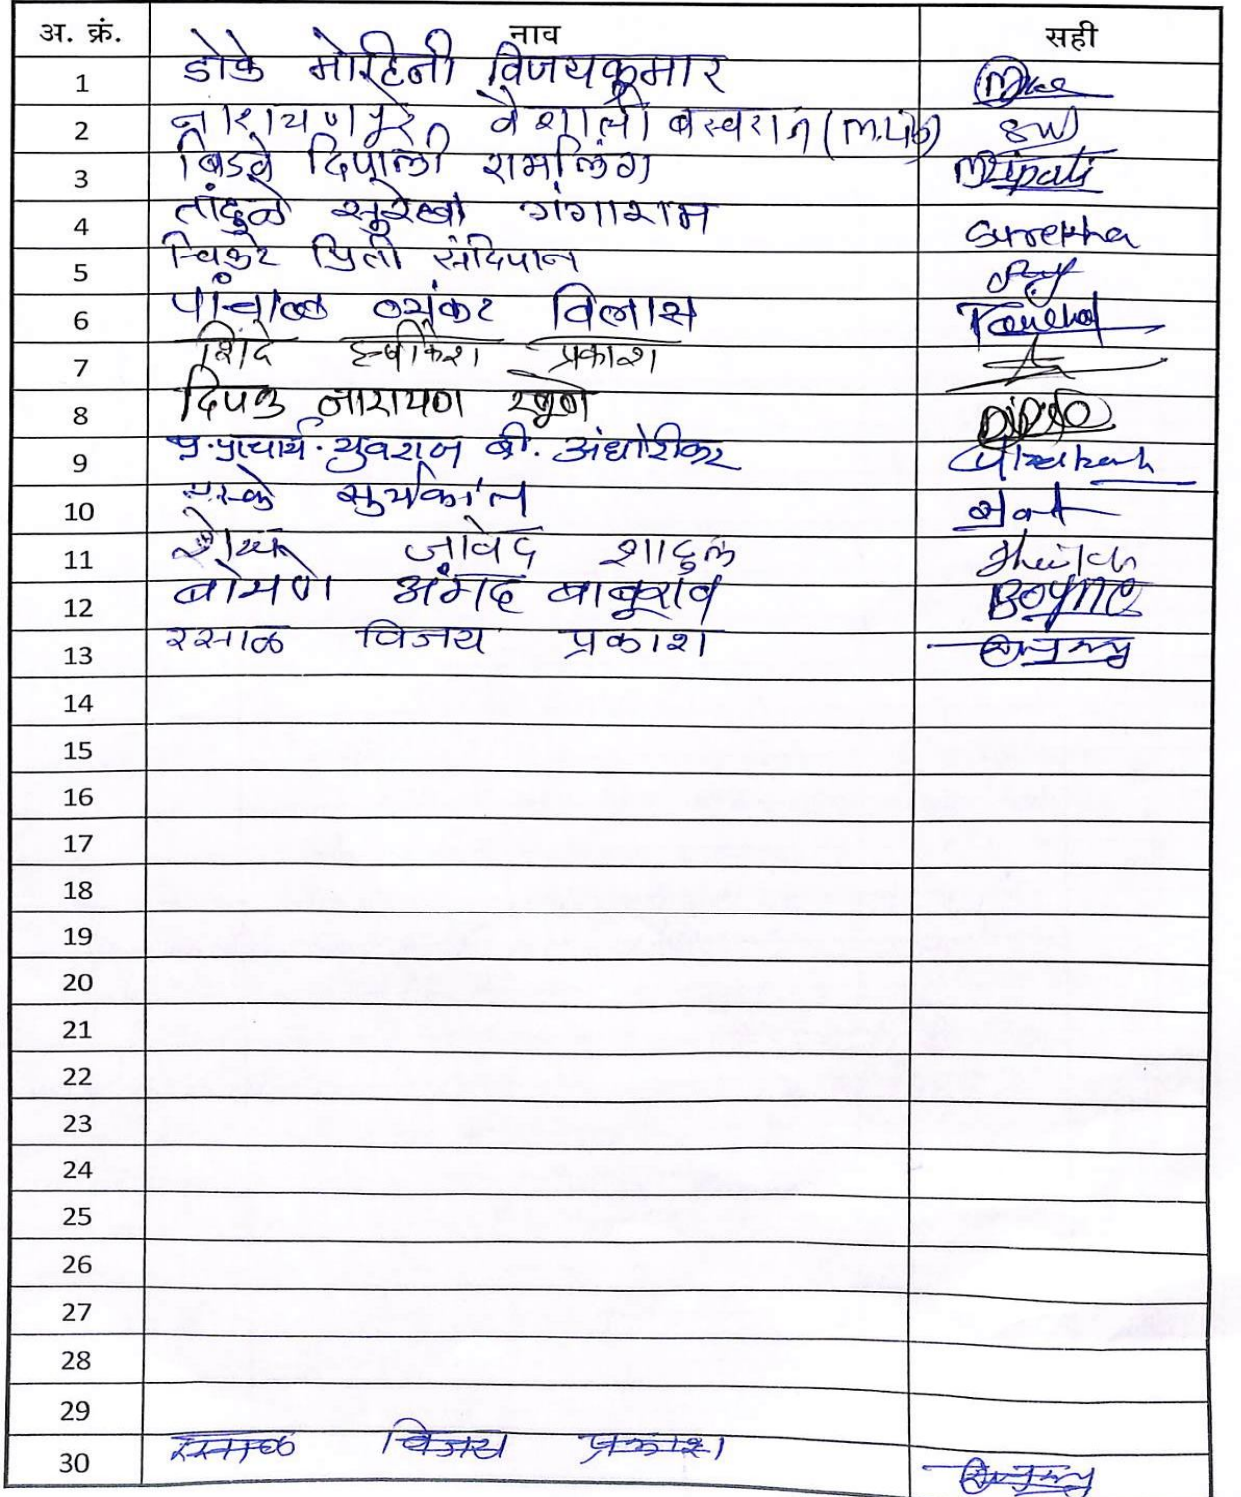 अ. क्रं. नाव सही
1 डोके मोहिनी विजयकुमार
2 नारायणपुरे वैशाली बस्वराज (M.Lib)
3 बिडवे दिपाली रामलिंग Dipali
4 तांदुळे सुरेखा गंगाराम Surekha
5 चिकटे प्रिती संदिपान
6 पांचाळ व्यंकट विलास
7 शिंदे ऋषीकेश प्रकाश
8 दिपक नारायण
9 प्र.प्राचार्य. युवराज बी. अंधोरीकर
10 सुर्यकांत
11 शेख जावेद शादुल Sheikh
12 बोयणे अंगद बाबुराव Boyne
13 रसाळ विजय प्रकाश
14
15
16
17
18
19
20
21
22
23
24
25
26
27
28
29
30 रसाळ विजय प्रकाश